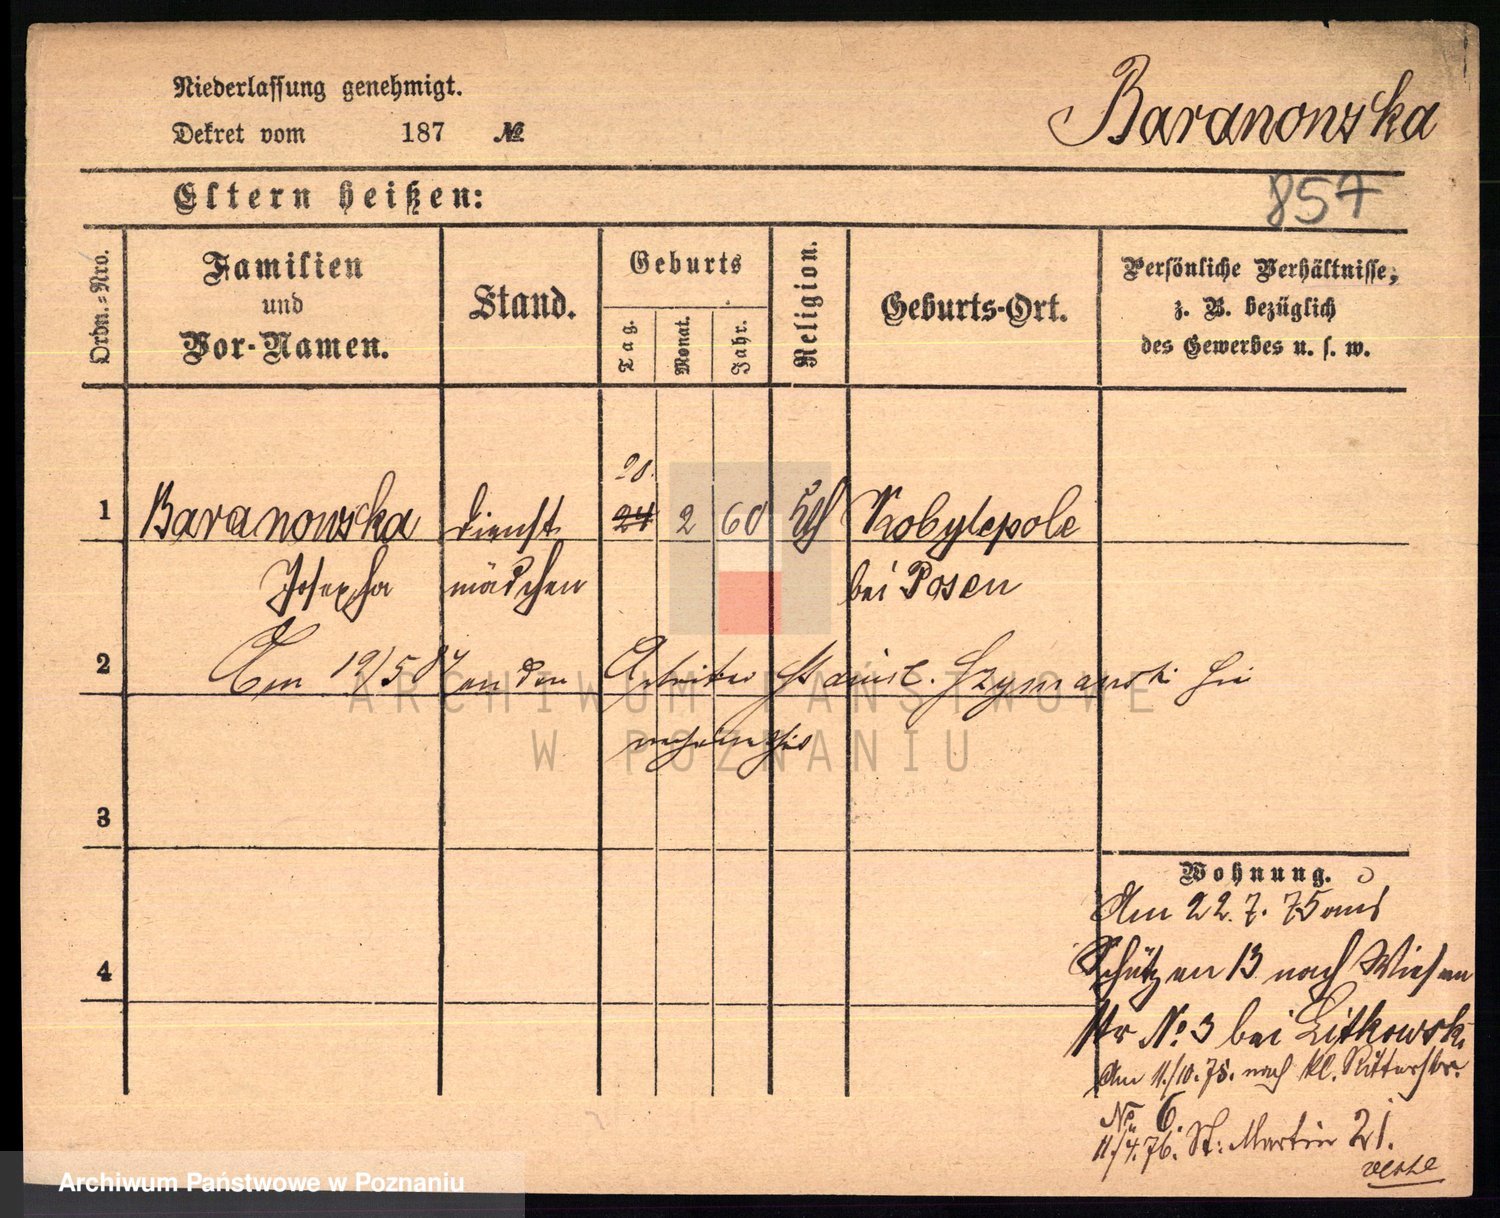 Niederlassung genehmigt.
Dekret vom 187 №
Baranowska
Eltern heißen:
857
Ordn.=Nro.
Familien
und
Vor-Namen.
Stand.
Geburts
Tag.
Monat.
Jahr.
Religion.
Geburts-Ort.
Persönliche Verhältnisse,
z. B. bezüglich
des Gewerbes u. s. w.
20.
1 Baranowska Dienst 24 2 60 kth Kobylepole
Josepha mädchen bei Posen
2 Am 19/5 87 an den Arbeiter Stanisl. Szymanski hier
3
Wohnung.
Am 22.7.75 aus
4 Schützen 13 nach Wiesen
str No 3 bei Litkowski
Am 11/10.75. nach kl. Ritterstr.
No 6.
11/4.76. St: Martin 21.
ARCHIWUM PAŃSTWOWE
W POZNANIU
Archiwum Państwowe w Poznaniu